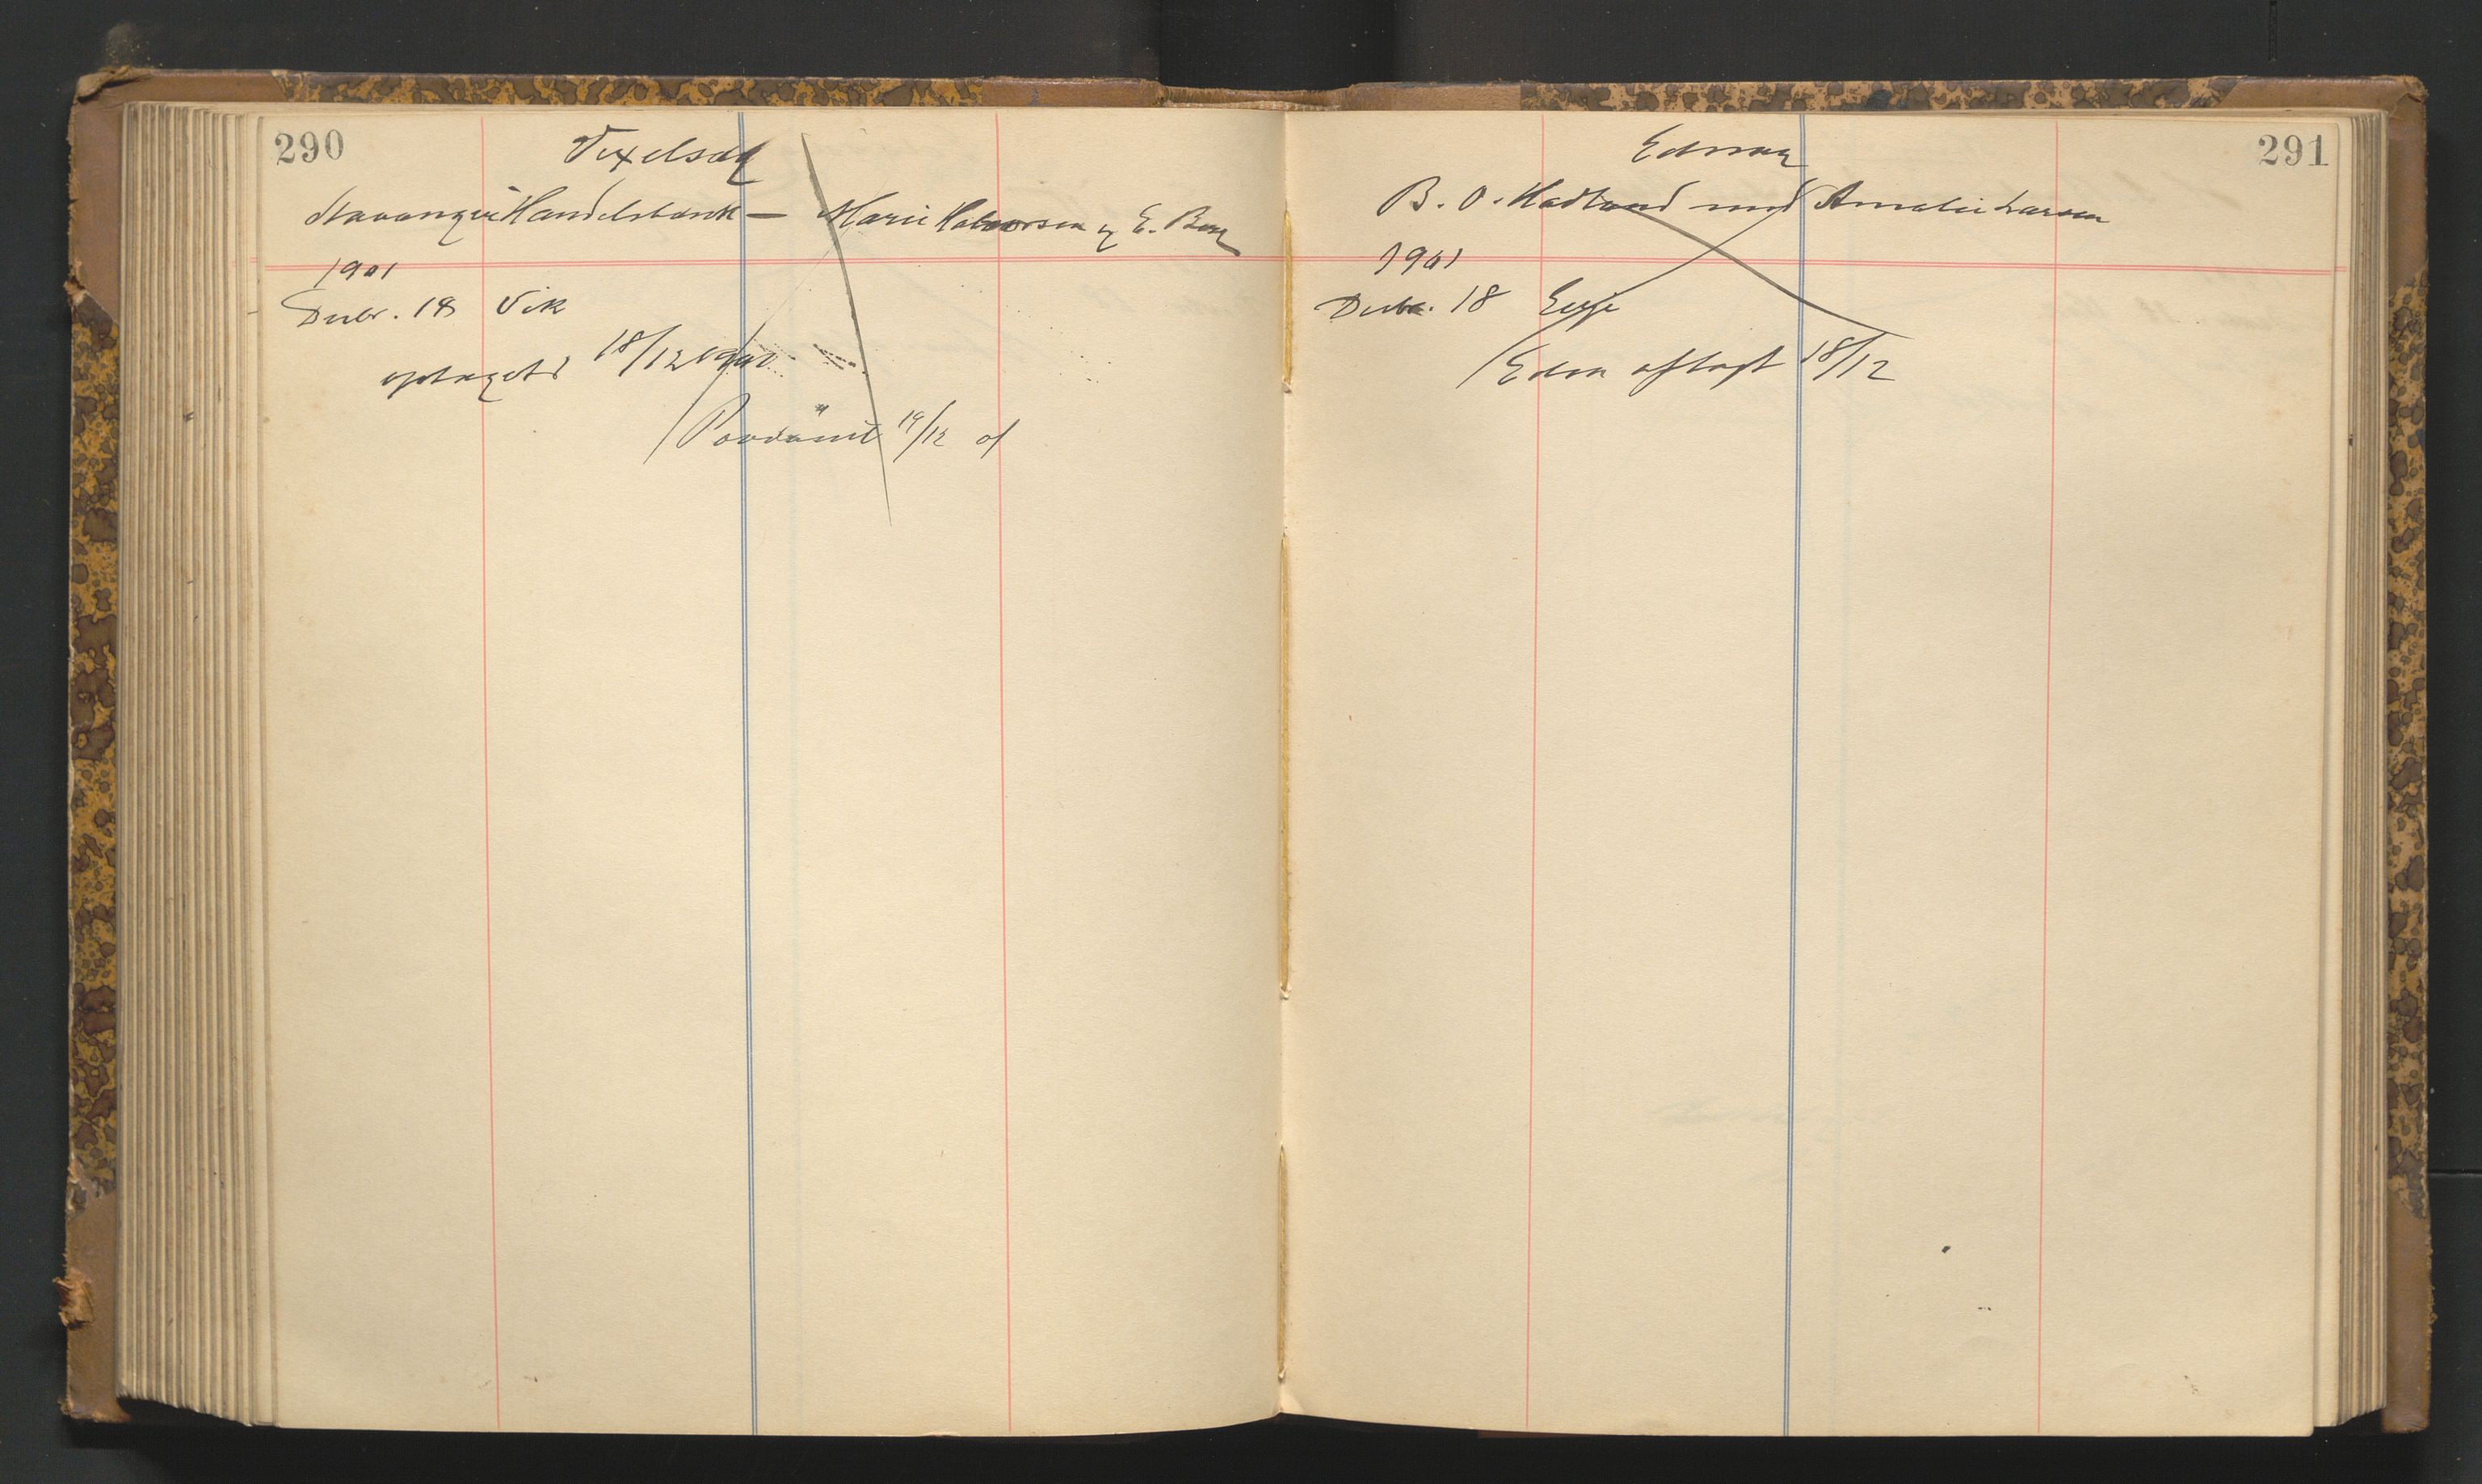 290
Vexelsag
Stavanger Handelsbank — Marie Halvorsen og E. Berg
1901
Decbr. 18 Vik
optaget 18/12 1901
Paadömt 19/12 of
291
Edssag
B. O. Hadland mod Amalie Larsen
1901
Decbr. 18 Eeje
Eden aflagt 18/12